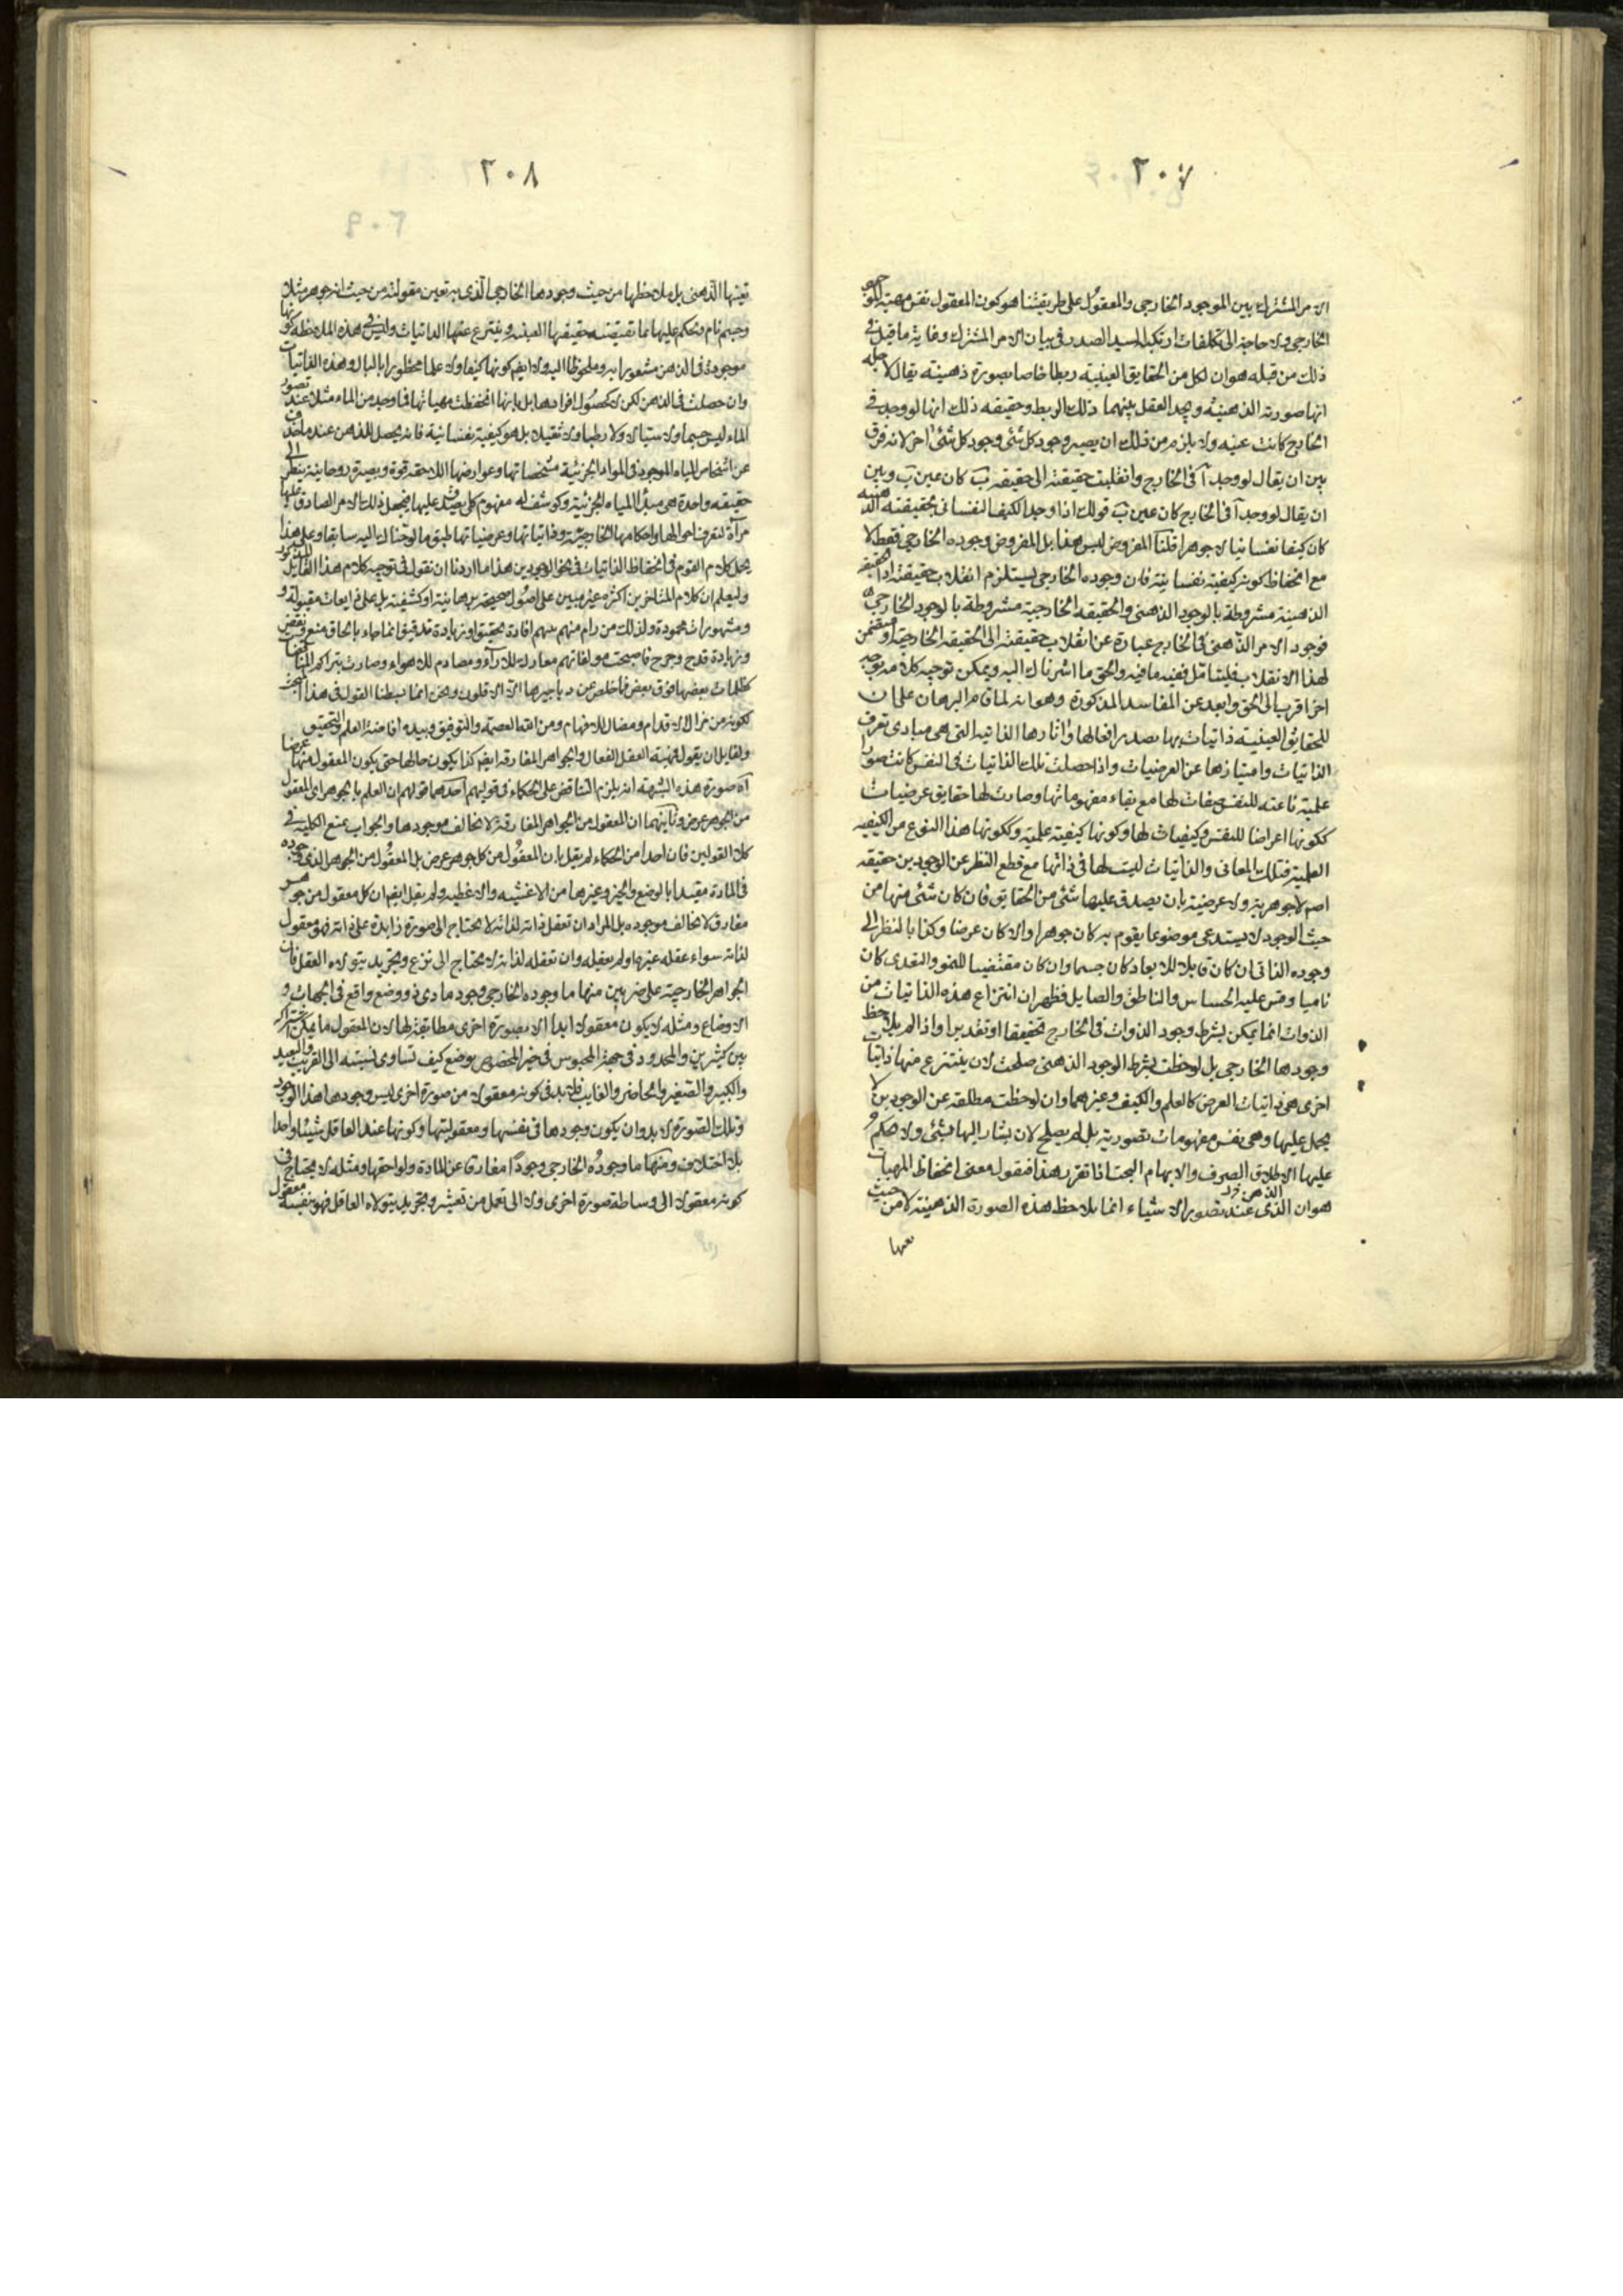 ٢٠٧
الامر المشترك بين الموجود الخارجى والمعقول على طريقتنا هو كون المعقول نفس مهية الموجود
الخارجى ولا حاجة الى تكلفات ارتكبها السيد الصدر فى بيان الامر المشترك وغاية ما قيل فى
ذلك من قبله هو ان لكل من الحقايق العينية ربطا خاصا بصورة ذهنية يقال لاجله
انها صورته الذهنية ويجد العقل بينهما ذلك الربط وحقيقه ذلك انها لو وجد فى
الخارج كانت عينه ولا يلزم من ذلك ان يصير وجود كل شئ وجود كل شئ اخر لانه فرق
بين ان يقال لو وجد آ فى الخارج وانقلبت حقيقته الى حقيقه ب كان عين ب وبين
ان يقال لو وجد آ فى الخارج كان عين ب قولك اذا وجد الكيف النفسانى بحقيقته الذهنيه
كان كيفا نفسانيا لا جوهرا قلنا المفروض ليس هذا بل المفروض وجوده الخارجى فقط لا
مع انحفاظ كونه كيفية نفسانية فان وجوده الخارجى يستلزم انقلاب حقيقته اذ الحقيقه
الذهنية مشروطة بالوجود الذهنى والحقيقه الخارجية مشروطة بالوجود الخارجى
فوجود الامر الذهنى فى الخارج عبارة عن انقلاب حقيقته الى الحقيقه الخارجية او متضمن
لهذا الانقلاب فليتامل ففيه ما فيه والحق ما اشرناك اليه ويمكن توجيه كلامه بوجه
اخر اقرب الى الحق وابعد عن المفاسد المذكورة وهو انه لما قام البرهان على ان
للحقايق العينيه ذاتيات بها يصدر افعالها واثارها الذاتيه التى هى مبادى تعرف
الذاتيات وامتيازها عن العرضيات واذا حصلت تلك الذاتيات فى النفس كانت صورا
علمية ناعته للنفس صفات لها مع بقاء مفهوماتها وصارت لها حقايق عرضيات
ككونها اعراضا للنفس وكيفيات لها وكونها كيفية علمية وككونها هذا النوع من الكيفيه
العلمية فتلك المعانى والذاتيات ليست لها فى ذاتها مع قطع النظر عن الوجودين حقيقه
اصم لا جوهرية ولا عرضية بان يصدق عليها شئ من الحقايق فان كان شئ منها من
حيث الوجود لا يستدعى موضوعا يقوم به كان جوهرا والا كان عرضا وكذا بالنظر الى
وجوده الذاتى ان كان قابلا للابعاد كان جسما وان كان مقتضيا للنمو والتغدى كان
ناميا وقس عليه الحساس والناطق والصايل فظهر ان انتزاع هذه الذاتيات من
الذوات انما يمكن بشرط وجود الذوات فى الخارج تحقيقا او تقديرا واذا لم يلاحظ
وجودها الخارجى بل لوحظت بشرط الوجود الذهنى صلحت لان ينتزع منها ذاتيات
اخرى هى ذاتيات العرض كالعلم والكيف وغيرهما وان لوحظت مطلقه عن الوجودين لا
يحمل عليها وهى نفس مفهومات تصورية بل لم يصلح لان يشار اليها فبشئ ولا حكم
عليها الا طلاق الصرف والابهام البحت اذا تقرر هذا فنقول معنى انحفاظ المهيات
هو ان الذهن عند تصور الاشياء انما يلاحظ هذه الصورة الذهنية لا من حيث
تعينها
٢٠٨
تعينها الذهنى بل ملاحظها من حيث وجودها الخارجى الذى به تعين مقولته من حيث انه جوهر مثلا
وجسم نام ويحكم عليها بما تقتضيه حقيقتها العينيه وينتزع عنها الذاتيات وليس فى هذه الملاحظه كونها
موجودة فى الذهن مشعورا به وملحوظا اليه ولا ايضا كونها كيفا ولا علما محظورا بالبال وهذه الذاتيات
وان حصلت فى الذهن لكن لا كحصول افرادها بل بانها انحفظت مهياتها فاوجد من الماء مثلا عند تصور
الماء ليس جسما ولا سيالا ولا رطبا ولا ثقيلا بل هو كيفية نفسانية فانه يحصل للذهن عند ما حذف
عن اشخاص المياه الموجود فى المواد الجزئية مشخصاتها وعوارضها اللاحقه قوة وبصيرة روحانية ينظر الى
حقيقه واحدة هى مبدأ المياه الجزئية وكوشف له مفهوم كلى يصدق عليها فيجعل ذلك الامر الصادق عليها
مرآة لتعرف احوالها واحكامها الخارجية وذاتياتها وعرضياتها طبق ما لوحناك اليه سابقا وعلى هذا
يحمل كلام القوم فى انحفاظ الذاتيات فى نحو الوجودين هذا ما اردنا ان نقول فى توجيه كلام هذا القائل المذكور
وليعلم ان كلام المتاخرين اكثره غير مبين على اصول صحيحة برهانية او كشفية بل على ذايعات مقبوله و
مشهورات محمودة ولذلك من رام منهم بينهم افادة تحقيق او زيادة تدقيق انما جاء بالحاق منع ونقض
وزيادة قدح وجرح فاصبحت مولفاتهم معارك للآراء ومصادم للاهواء وصارت بتراكم المناقضات
كظلمات بعضها فوق بعض فما خلص عن دياجيرها الا الاقلون ونحن انما بسطنا القول فى هذا المبحث
لكونه من مزال الاقدام ومضال للافهام ومن الله العصمة والتوفيق وبيده افاضة العلم والتحقيق
ولقايل ان يقول مهية العقل الفعال والجواهر المفارقه ايضا كذا يكون حالها حتى يكون المعقول منها عرضا
آه صورة هذه الشبهة انه يلزم التناقض على الحكماء فى قوليهم احدهما قولهم ان العلم بالجوهر اى المعقول
من الجوهر عرض وثانيهما ان المعقول من الجواهر المفارقة لا يخالف موجودها والجواب بمنع الكليه فى
كلا القولين فان احدا من الحكماء لم يقل بان المعقول من كل جوهر عرض بل المعقول من الجوهر الذى وجوده
فى المادة مقيدا بالوضع والحيز وغيرهما من الاغشيه والاغطيه ولم يقل ايضا ان كل معقول من جوهر
مفارق لا يخالف موجوده بل المراد ان تعقل ذاته لذاته لا يحتاج الى صورة زايدة على ذاته فهو معقول
لذاته سواء عقله غيرها ولم يعقله وان تعقله لذاته لا يحتاج الى نزع وتجريد يتولاه العقل فان
الجواهر الخارجية على ضربين منها ما وجوده الخارجى وجود مادى ذو وضع واقع فى الجهات و
الاوضاع ومثله لا يكون معقولا ابدا الا بصورة اخرى مطابقة لها لان المعقول ما يمكن اشتراكه
بين كثيرين والمحدود فى جهة المحبوس فى حيز المخصوص بوضع كيف تساوى نسبته الى القريب والبعيد
والكبير والصغير والحاضر والغايب فلابد فى كونه معقولا من صورة اخرى ليس وجودها هذا الوجود
وتلك الصورة لا بد وان يكون وجودها فى نفسها ومعقوليتها وكونها عند العاقل شيئا واحدا
بلا اختلاف ومنها ما وجوده الخارجى وجودا مفارقا عن المادة ولواحقها ومثله لا يحتاج فى
كونه معقولا الى وساطة صورة اخرى ولا الى تعمل من تعشير وتجريد يتولاه العاقل فهو بنفسه معقول